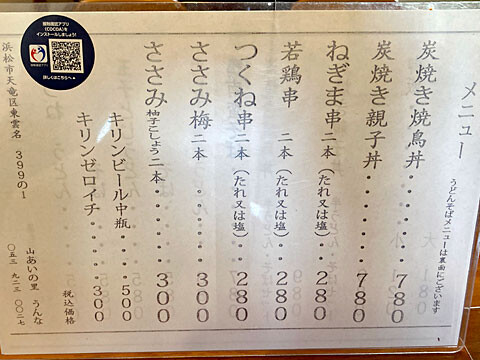 メニュー
うどんそばメニューは裏面にございます
炭焼き焼鳥丼・・・・・780
炭焼き親子丼・・・・・780
ねぎま串 二本(たれ又は塩)・・280
若鶏串 二本(たれ又は塩)・・280
つくね串二本(たれ又は塩)・・280
ささみ梅二本・・・・300
ささみ柚子こしょう二本・・・300
キリンビール中瓶・・・500
キリンゼロイチ・・・・300
税込価格
山あいの里 うんな
浜松市天竜区東雲名 399の1
〇五三 九二三 〇〇二七
接触確認アプリ
(COCOA)を
インストールしましょう!
詳しくはこちらへ